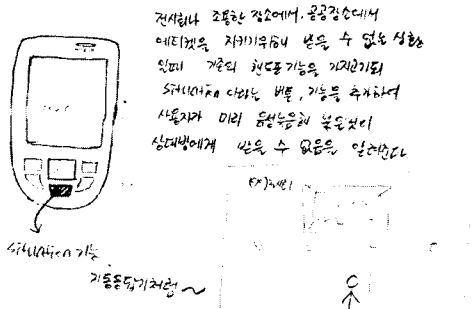 전시회나 조용한 장소에서, 공공장소에서
에티켓을 지키기위해 받을 수 없는 상황
일때 기존의 핸드폰기능을 가지고있되
situation 이라는 버튼, 기능을 추가하여
사용자가 미리 음성녹음해 놓은것이
상대방에게 받을 수 없음을 알려준다
situation 기능
자동응답기처럼~